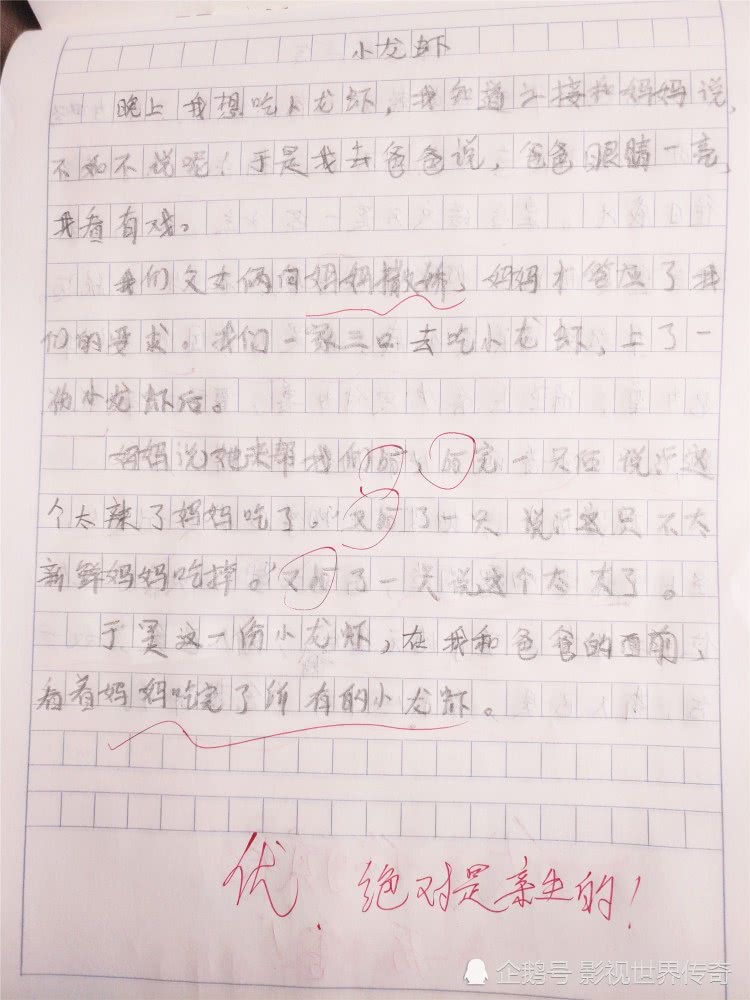 小龙虾
晚上我想吃小龙虾,我知道直接和妈妈说,
不如不说呢!于是我去爸爸说,爸爸眼睛一亮,
我看有戏。
我们父女俩向妈妈撒娇,妈妈才答应了我
们的要求。我们一家三口去吃小龙虾,上了一
份小龙虾后。
妈妈说她来帮我们,完一只后说:这
个太辣了妈妈吃了。又了一只说:这只不太
新鲜妈妈吃掉。又了一只说这个太大了。
于是这一份小龙虾,在我和爸爸的面前,
看着妈妈吃完了所有的小龙虾。
优,绝对是亲生的!
企鹅号 影视世界传奇